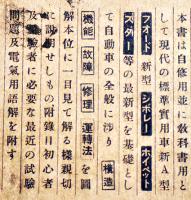 本書は自修用並に教科書用と
して現代の標準實用車新A型
フオード新型シボレーホイペット
スター等の最新型を基礎とし
て自動車の全般に渉り構造
機能故障修理運轉法を圖
解本位に一目見て解る樣親切
說明せしもの附錄は初心者
及受驗者に必要な最近の試驗
問題及電氣用語解を附す